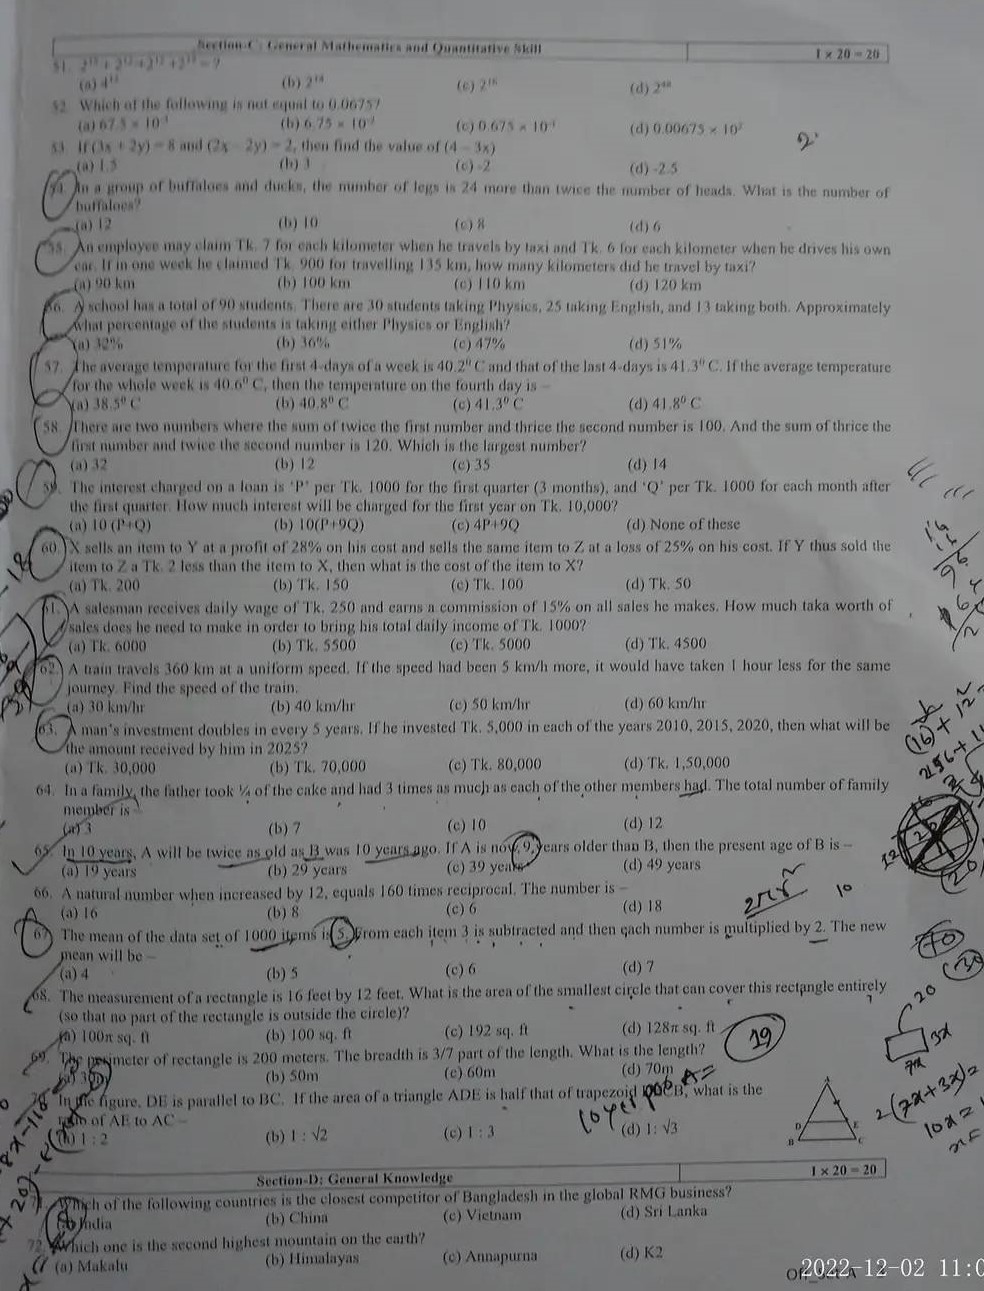 Section-C: General Mathematics and Quantitative Skill 1 × 20 = 20
51.
(a) 4¹³ (b) 2¹⁴ (c) 2¹⁶ (d) 2⁴⁸
52. Which of the following is not equal to 0.0675?
(a) 67.5 × 10⁻³ (b) 6.75 × 10⁻² (c) 0.675 × 10⁻¹ (d) 0.00675 × 10²
53. If (3x + 2y) = 8 and (2x - 2y) = 2, then find the value of (4 - 3x)
(a) 1.5 (b) 3 (c) -2 (d) -2.5
54. In a group of buffaloes and ducks, the number of legs is 24 more than twice the number of heads. What is the number of
buffaloes?
(a) 12 (b) 10 (c) 8 (d) 6
55. An employee may claim Tk. 7 for each kilometer when he travels by taxi and Tk. 6 for each kilometer when he drives his own
car. If in one week he claimed Tk. 900 for travelling 135 km, how many kilometers did he travel by taxi?
(a) 90 km (b) 100 km (c) 110 km (d) 120 km
56. A school has a total of 90 students. There are 30 students taking Physics, 25 taking English, and 13 taking both. Approximately
what percentage of the students is taking either Physics or English?
(a) 32% (b) 36% (c) 47% (d) 51%
57. The average temperature for the first 4-days of a week is 40.2⁰ C and that of the last 4-days is 41.3⁰ C. If the average temperature
for the whole week is 40.6⁰ C, then the temperature on the fourth day is –
(a) 38.5⁰ C (b) 40.8⁰ C (c) 41.3⁰ C (d) 41.8⁰ C
58. There are two numbers where the sum of twice the first number and thrice the second number is 100. And the sum of thrice the
first number and twice the second number is 120. Which is the largest number?
(a) 32 (b) 12 (c) 35 (d) 14
59. The interest charged on a loan is 'P' per Tk. 1000 for the first quarter (3 months), and 'Q' per Tk. 1000 for each month after
the first quarter. How much interest will be charged for the first year on Tk. 10,000?
(a) 10 (P+Q) (b) 10(P+9Q) (c) 4P+9Q (d) None of these
60. X sells an item to Y at a profit of 28% on his cost and sells the same item to Z at a loss of 25% on his cost. If Y thus sold the
item to Z a Tk. 2 less than the item to X, then what is the cost of the item to X?
(a) Tk. 200 (b) Tk. 150 (c) Tk. 100 (d) Tk. 50
61. A salesman receives daily wage of Tk. 250 and earns a commission of 15% on all sales he makes. How much taka worth of
sales does he need to make in order to bring his total daily income of Tk. 1000?
(a) Tk. 6000 (b) Tk. 5500 (c) Tk. 5000 (d) Tk. 4500
62. A train travels 360 km at a uniform speed. If the speed had been 5 km/h more, it would have taken 1 hour less for the same
journey. Find the speed of the train.
(a) 30 km/hr (b) 40 km/hr (c) 50 km/hr (d) 60 km/hr
63. A man's investment doubles in every 5 years. If he invested Tk. 5,000 in each of the years 2010, 2015, 2020, then what will be
the amount received by him in 2025?
(a) Tk. 30,000 (b) Tk. 70,000 (c) Tk. 80,000 (d) Tk. 1,50,000
64. In a family, the father took ¼ of the cake and had 3 times as much as each of the other members had. The total number of family
member is –
(a) 3 (b) 7 (c) 10 (d) 12
65. In 10 years, A will be twice as old as B was 10 years ago. If A is now 9 years older than B, then the present age of B is –
(a) 19 years (b) 29 years (c) 39 years (d) 49 years
66. A natural number when increased by 12, equals 160 times reciprocal. The number is –
(a) 16 (b) 8 (c) 6 (d) 18
2πr² 10
67. The mean of the data set of 1000 items is 5. From each item 3 is subtracted and then each number is multiplied by 2. The new
mean will be –
(a) 4 (b) 5 (c) 6 (d) 7
68. The measurement of a rectangle is 16 feet by 12 feet. What is the area of the smallest circle that can cover this rectangle entirely
(so that no part of the rectangle is outside the circle)?
(a) 100π sq. ft (b) 100 sq. ft (c) 192 sq. ft (d) 128π sq. ft
19
69. The perimeter of rectangle is 200 meters. The breadth is 3/7 part of the length. What is the length?
(a) 30m (b) 50m (c) 60m (d) 70m
70. In the figure, DE is parallel to BC. If the area of a triangle ADE is half that of trapezoid DECB, what is the
ratio of AE to AC –
(a) 1 : 2 (b) 1 : √2 (c) 1 : 3 (d) 1: √3
A D E B C
20 3x 7x
2(7x+3x)=
10x=
Section-D: General Knowledge 1 × 20 = 20
71. Which of the following countries is the closest competitor of Bangladesh in the global RMG business?
(a) India (b) China (c) Vietnam (d) Sri Lanka
72. Which one is the second highest mountain on the earth?
(a) Makalu (b) Himalayas (c) Annapurna (d) K2
2022-12-02 11:0